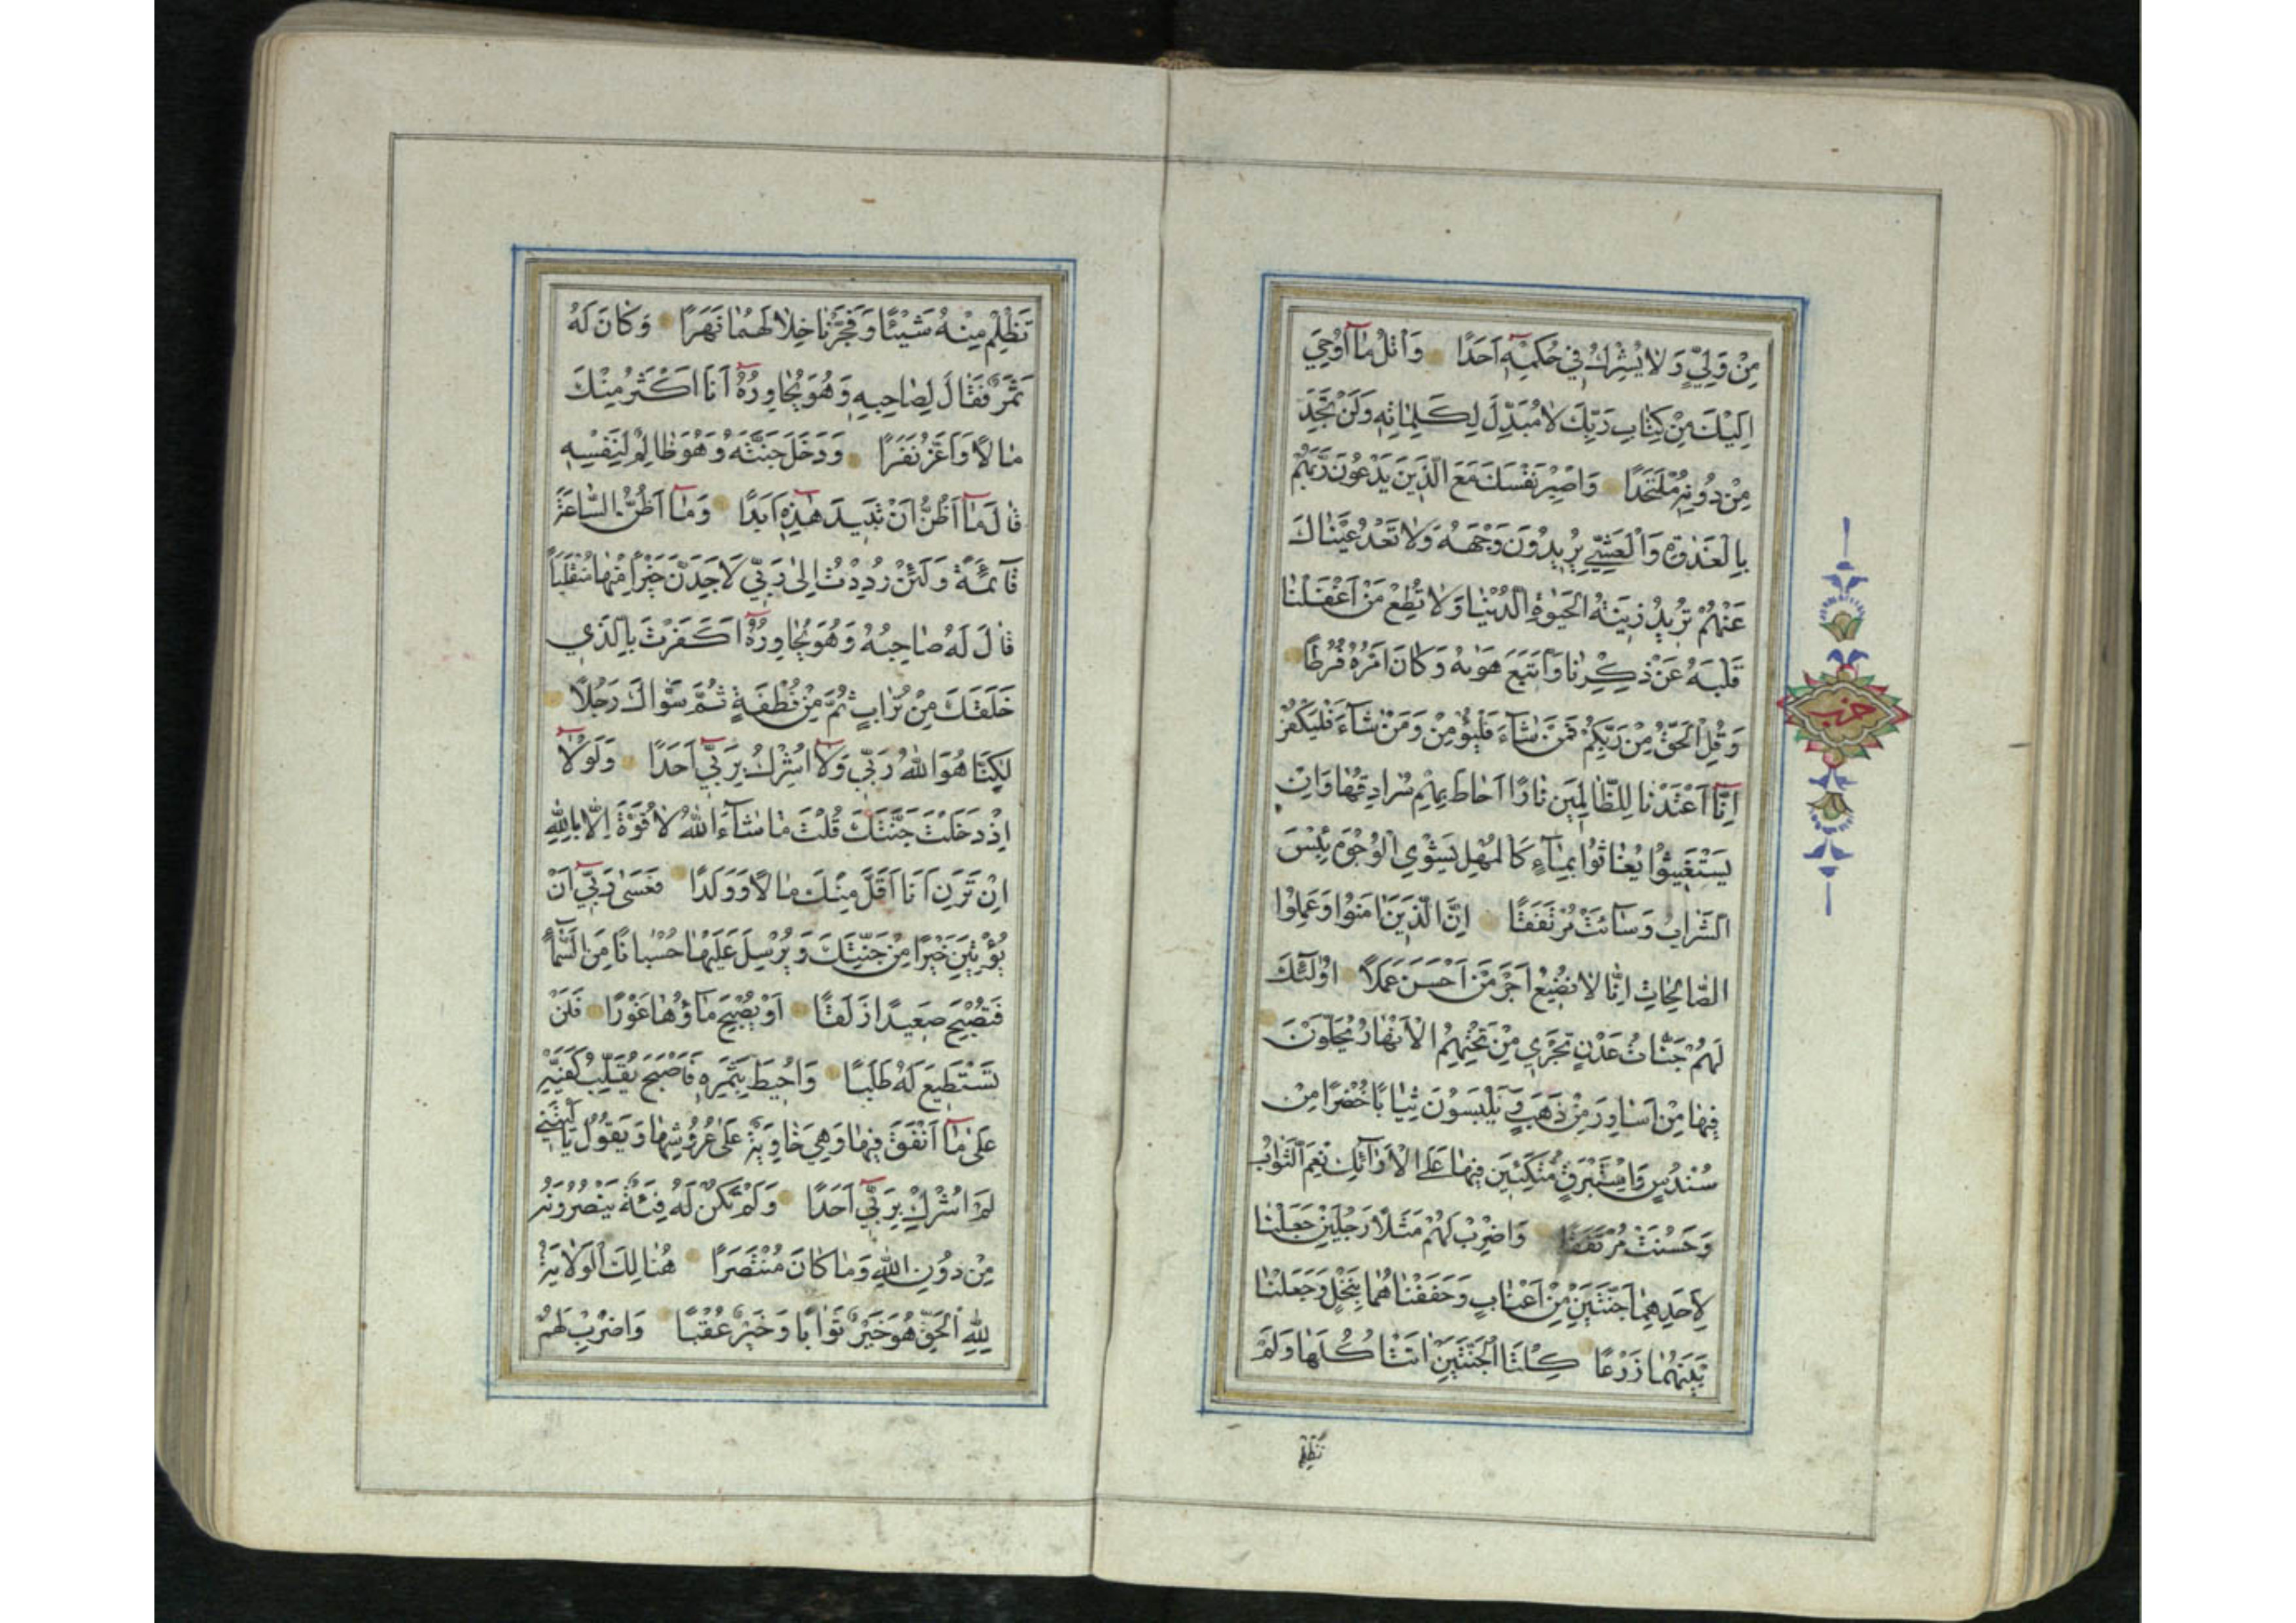 مِنْ وَلِيٍّ وَلَا يُشْرِكُ فِي حُكْمِهِٓ اَحَدًا وَاتْلُ مَٓا اُوحِيَ
اِلَيْكَ مِنْ كِتَابِ رَبِّكَ لَا مُبَدِّلَ لِكَلِمَاتِهِ وَلَنْ تَجِدَ
مِنْ دُونِهِ مُلْتَحَدًا وَاصْبِرْ نَفْسَكَ مَعَ الَّذِينَ يَدْعُونَ رَبَّهُمْ
بِالْغَدٰوةِ وَالْعَشِيِّ يُرِيدُونَ وَجْهَهُ وَلَا تَعْدُ عَيْنَاكَ
عَنْهُمْ تُرِيدُ زِينَةَ الْحَيٰوةِ الدُّنْيَا وَلَا تُطِعْ مَنْ اَغْفَلْنَا
قَلْبَهُ عَنْ ذِكْرِنَا وَاتَّبَعَ هَوٰيهُ وَكَانَ اَمْرُهُ فُرُطًا
وَقُلِ الْحَقُّ مِنْ رَبِّكُمْ فَمَنْ شَٓاءَ فَلْيُؤْمِنْ وَمَنْ شَٓاءَ فَلْيَكْفُرْ
اِنَّٓا اَعْتَدْنَا لِلظَّالِمِينَ نَارًا اَحَاطَ بِهِمْ سُرَادِقُهَا وَاِنْ
يَسْتَغِيثُوا يُغَاثُوا بِمَٓاءٍ كَالْمُهْلِ يَشْوِي الْوُجُوهَ بِئْسَ
الشَّرَابُ وَسَٓائَتْ مُرْتَفَقًا اِنَّ الَّذِينَ اٰمَنُوا وَعَمِلُوا
الصَّالِحَاتِ اِنَّا لَا نُضِيعُ اَجْرَ مَنْ اَحْسَنَ عَمَلًا اُولٰٓئِكَ
لَهُمْ جَنَّاتُ عَدْنٍ تَجْرِي مِنْ تَحْتِهِمُ الْاَنْهَارُ يُحَلَّوْنَ
فِيهَا مِنْ اَسَاوِرَ مِنْ ذَهَبٍ وَيَلْبَسُونَ ثِيَابًا خُضْرًا مِنْ
سُنْدُسٍ وَاِسْتَبْرَقٍ مُتَّكِئِينَ فِيهَا عَلَى الْاَرَٓائِكِ نِعْمَ الثَّوَابُ
وَحَسُنَتْ مُرْتَفَقًا وَاضْرِبْ لَهُمْ مَثَلًا رَجُلَيْنِ جَعَلْنَا
لِاَحَدِهِمَا جَنَّتَيْنِ مِنْ اَعْنَابٍ وَحَفَفْنَاهُمَا بِنَخْلٍ وَجَعَلْنَا
بَيْنَهُمَا زَرْعًا كِلْتَا الْجَنَّتَيْنِ اٰتَتْ اُكُلَهَا وَلَمْ
تَظْلِمْ
تَظْلِمْ مِنْهُ شَيْئًا وَفَجَّرْنَا خِلَالَهُمَا نَهَرًا وَكَانَ لَهُ
ثَمَرٌ فَقَالَ لِصَاحِبِهِ وَهُوَ يُحَاوِرُهُٓ اَنَا اَكْثَرُ مِنْكَ
مَالًا وَاَعَزُّ نَفَرًا وَدَخَلَ جَنَّتَهُ وَهُوَ ظَالِمٌ لِنَفْسِهِ
قَالَ مَٓا اَظُنُّ اَنْ تَبِيدَ هٰذِهِٓ اَبَدًا وَمَٓا اَظُنُّ السَّاعَةَ
قَٓائِمَةً وَلَئِنْ رُدِدْتُ اِلٰى رَبِّي لَاَجِدَنَّ خَيْرًا مِنْهَا مُنْقَلَبًا
قَالَ لَهُ صَاحِبُهُ وَهُوَ يُحَاوِرُهُٓ اَكَفَرْتَ بِالَّذِي
خَلَقَكَ مِنْ تُرَابٍ ثُمَّ مِنْ نُطْفَةٍ ثُمَّ سَوّٰاكَ رَجُلًا
لٰكِنَّا هُوَ اللّٰهُ رَبِّي وَلَٓا اُشْرِكُ بِرَبِّٓي اَحَدًا وَلَوْلَٓا
اِذْ دَخَلْتَ جَنَّتَكَ قُلْتَ مَا شَٓاءَ اللّٰهُ لَا قُوَّةَ اِلَّا بِاللّٰهِ
اِنْ تَرَنِ اَنَا اَقَلَّ مِنْكَ مَالًا وَوَلَدًا فَعَسٰى رَبِّٓي اَنْ
يُؤْتِيَنِ خَيْرًا مِنْ جَنَّتِكَ وَيُرْسِلَ عَلَيْهَا حُسْبَانًا مِنَ السَّمَٓاءِ
فَتُصْبِحَ صَعِيدًا زَلَقًا اَوْ يُصْبِحَ مَٓاؤُهَا غَوْرًا فَلَنْ
تَسْتَطِيعَ لَهُ طَلَبًا وَاُحِيطَ بِثَمَرِهِ فَاَصْبَحَ يُقَلِّبُ كَفَّيْهِ
عَلٰى مَٓا اَنْفَقَ فِيهَا وَهِيَ خَاوِيَةٌ عَلٰى عُرُوشِهَا وَيَقُولُ يَا لَيْتَنِي
لَمْ اُشْرِكْ بِرَبِّٓي اَحَدًا وَلَمْ تَكُنْ لَهُ فِئَةٌ يَنْصُرُونَهُ
مِنْ دُونِ اللّٰهِ وَمَا كَانَ مُنْتَصِرًا هُنَالِكَ الْوَلَايَةُ
لِلّٰهِ الْحَقِّ هُوَ خَيْرٌ ثَوَابًا وَخَيْرٌ عُقْبًا وَاضْرِبْ لَهُمْ
حزب